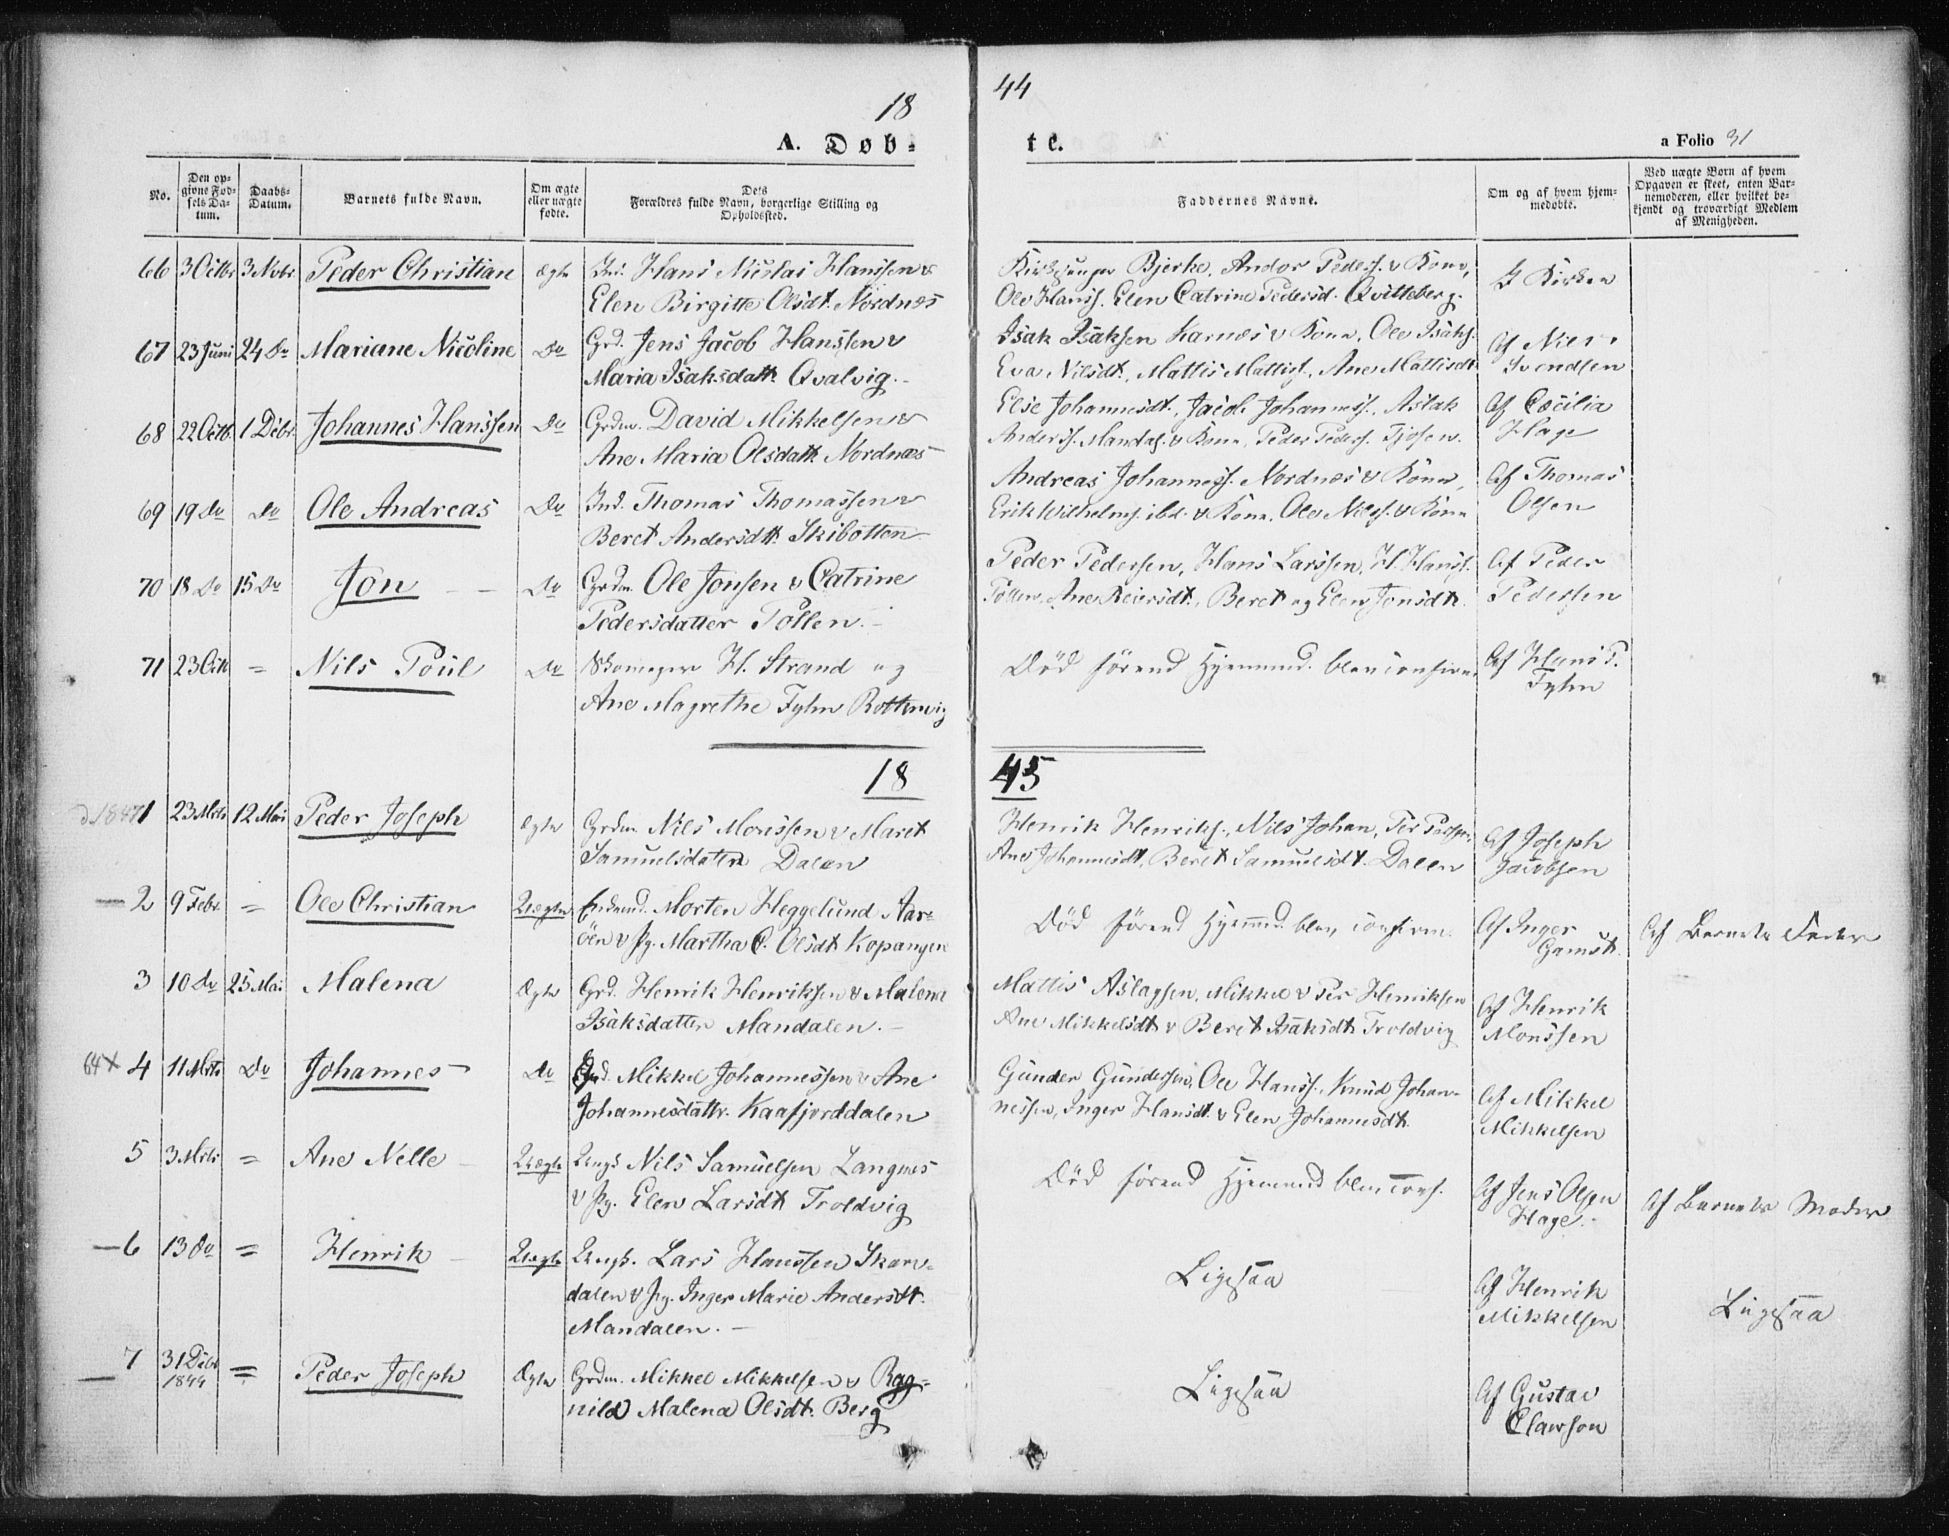 18 44
A. Døb- te. a Folio 31
No. | Den opgivne Fødsels Datum. | Daabs-Datum. | Barnets fulde Navn. | Om ægte eller uægte fødte. | Dets Forældres fulde Navn, borgerlige Stilling og Opholdssted. | Faddernes Navne. | Om og af hvem hjemmedøbte. | Ved uægte Børn af hvem Opgaven er skeet, enten Barnemoderen, eller hvilket bekjendt og troværdigt Medlem af Menigheden.
66 3 Octbr 3 Nvbr Peder Christian ægte Ind. Hans Nicolai Hanssen &
Elen Birgitte Olsdt. Nordnæs
Kirksanger Bjerke, Andor Peders. & Kone,
Ole Hanss. Elen Catrine Pedersd. Qvitteberg.
I Kirken
67 23 Juni 24 Do Mariane Nicoline Do Grd. Jens Jacob Hanssen &
Maria Isaksdatt. Qvalvig.
Isak Isaksen Karnæs & Kone, Ole Isaks.
Eva Nilsdt., Mattis Mattiss., Ane Mattisdt
Af Nils
Svendsen
68 22 Octb. 1 Debr. Johannes Hanssen Do Grdm. David Mikkelsen &
Ane Maria Olsdatt. Nordnæs
Else Johannesdt., Jacob Johanness., Aslak
Anderss. Mandal. & Kone, Peder Peders. Fjosen.
Af Cæcilia
Hage
69 19 Do Do Ole Andreas Do Ind. Thomas Thomassen &
Beret Andersdtt. Skibotten
Andreas Johanness. Nordnæs & Kone,
Erik Wilhelms. ibd. & Kone, Ole Nilss. & Kone
Af Thomas
Olsen
70 18 Do 15 Do Jon Do Grdm. Ole Jonsen & Catrine
Pedersdatter Pollen.
Peder Pedersen, Hans Larssen, H. Hanss.
Pollen, Ane Reiersdt., Beret og Elen Jonsdt.
Af Peder
Pedersen
71 23 Octb = Nils Poul Do H. Strand og
Ane Magrethe Fyhn Rottenvig
Død førend Hjemmed. blev confirm.
Af Hans P.
Fyhn
18 45
1 23 Mrts 12 Mai Peder Joseph ægte Grdm. Nils Monssen & Maret
Samuelsdatter Dalen
Henrik Henriks., Nils Johan, Per Perss.,
Ane Johannesdt, Beret Samuelsdt. Dalen
Af Joseph
Jacobsen
2 9 Febr. = Ole Christian Uægte Morten Heggelund Aar-
öen & Pg. Martha C. Olsdt Kopangen
Død førend Hjemmed. blev confirm.
Af Inger
Gamst.
Af Barnets Fader
3 10 Do 25 Mai Malena Ægte Grd. Henrik Henriksen & Malena
Isaksdatter Mandalen.
Mattis Aslagsen, Mikkel & Per Henriksen
Ane Mikkelsdt & Beret Isaksdt Troldvig
Af Henrik
Monssen
64 X 4 11 Mrts Do Johannes Do Grd. Mikkel Johannessen & Ane
Johannesdattr. Kaafjorddalen
Gunder Gundersen, Ole Hanss., Knud Johan-
nessen, Inger Hansdt. & Elen Johannesdt.
Af Mikkel
Mikkelsen
5 3 Mrts = Ane Nelle Uægte Ungk Nils Samuelsen Langnes
& Pg. Elen Larsdt Troldvig
Død førend Hjemmed blev conf.
Af Jens Olsen
Hage.
Af Barnets Moder
6 13 Do = Henrik Uægte Ungk. Lars Hanssen Skar-
dalen & Pg. Inger Marie Andersdt.
Mandalen.
Ligesaa
Af Henrik
Mikkelsen
Ligesaa
7 31 Debr 1844 = Peder Joseph Ægte Grdm. Mikkel Mikkelsen & Rag-
nild Malena Olsdt. Berg
Ligesaa
Af Gustav
Clawson